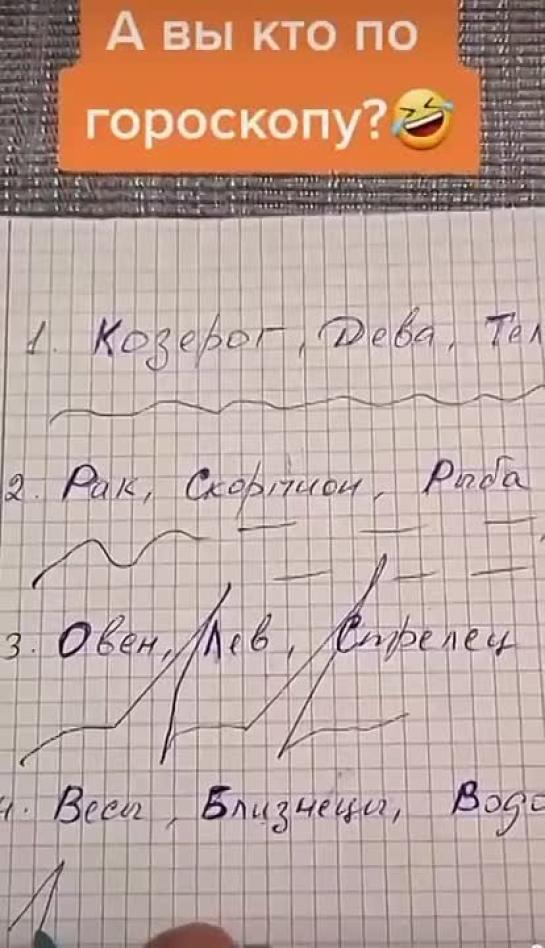 А вы кто по
гороскопу?🤣
1. Козерог, Дева, Тел
2. Рак, Скорпион, Рыба
3. Овен, Лев, Стрелец
4. Весы, Близнецы, Водо